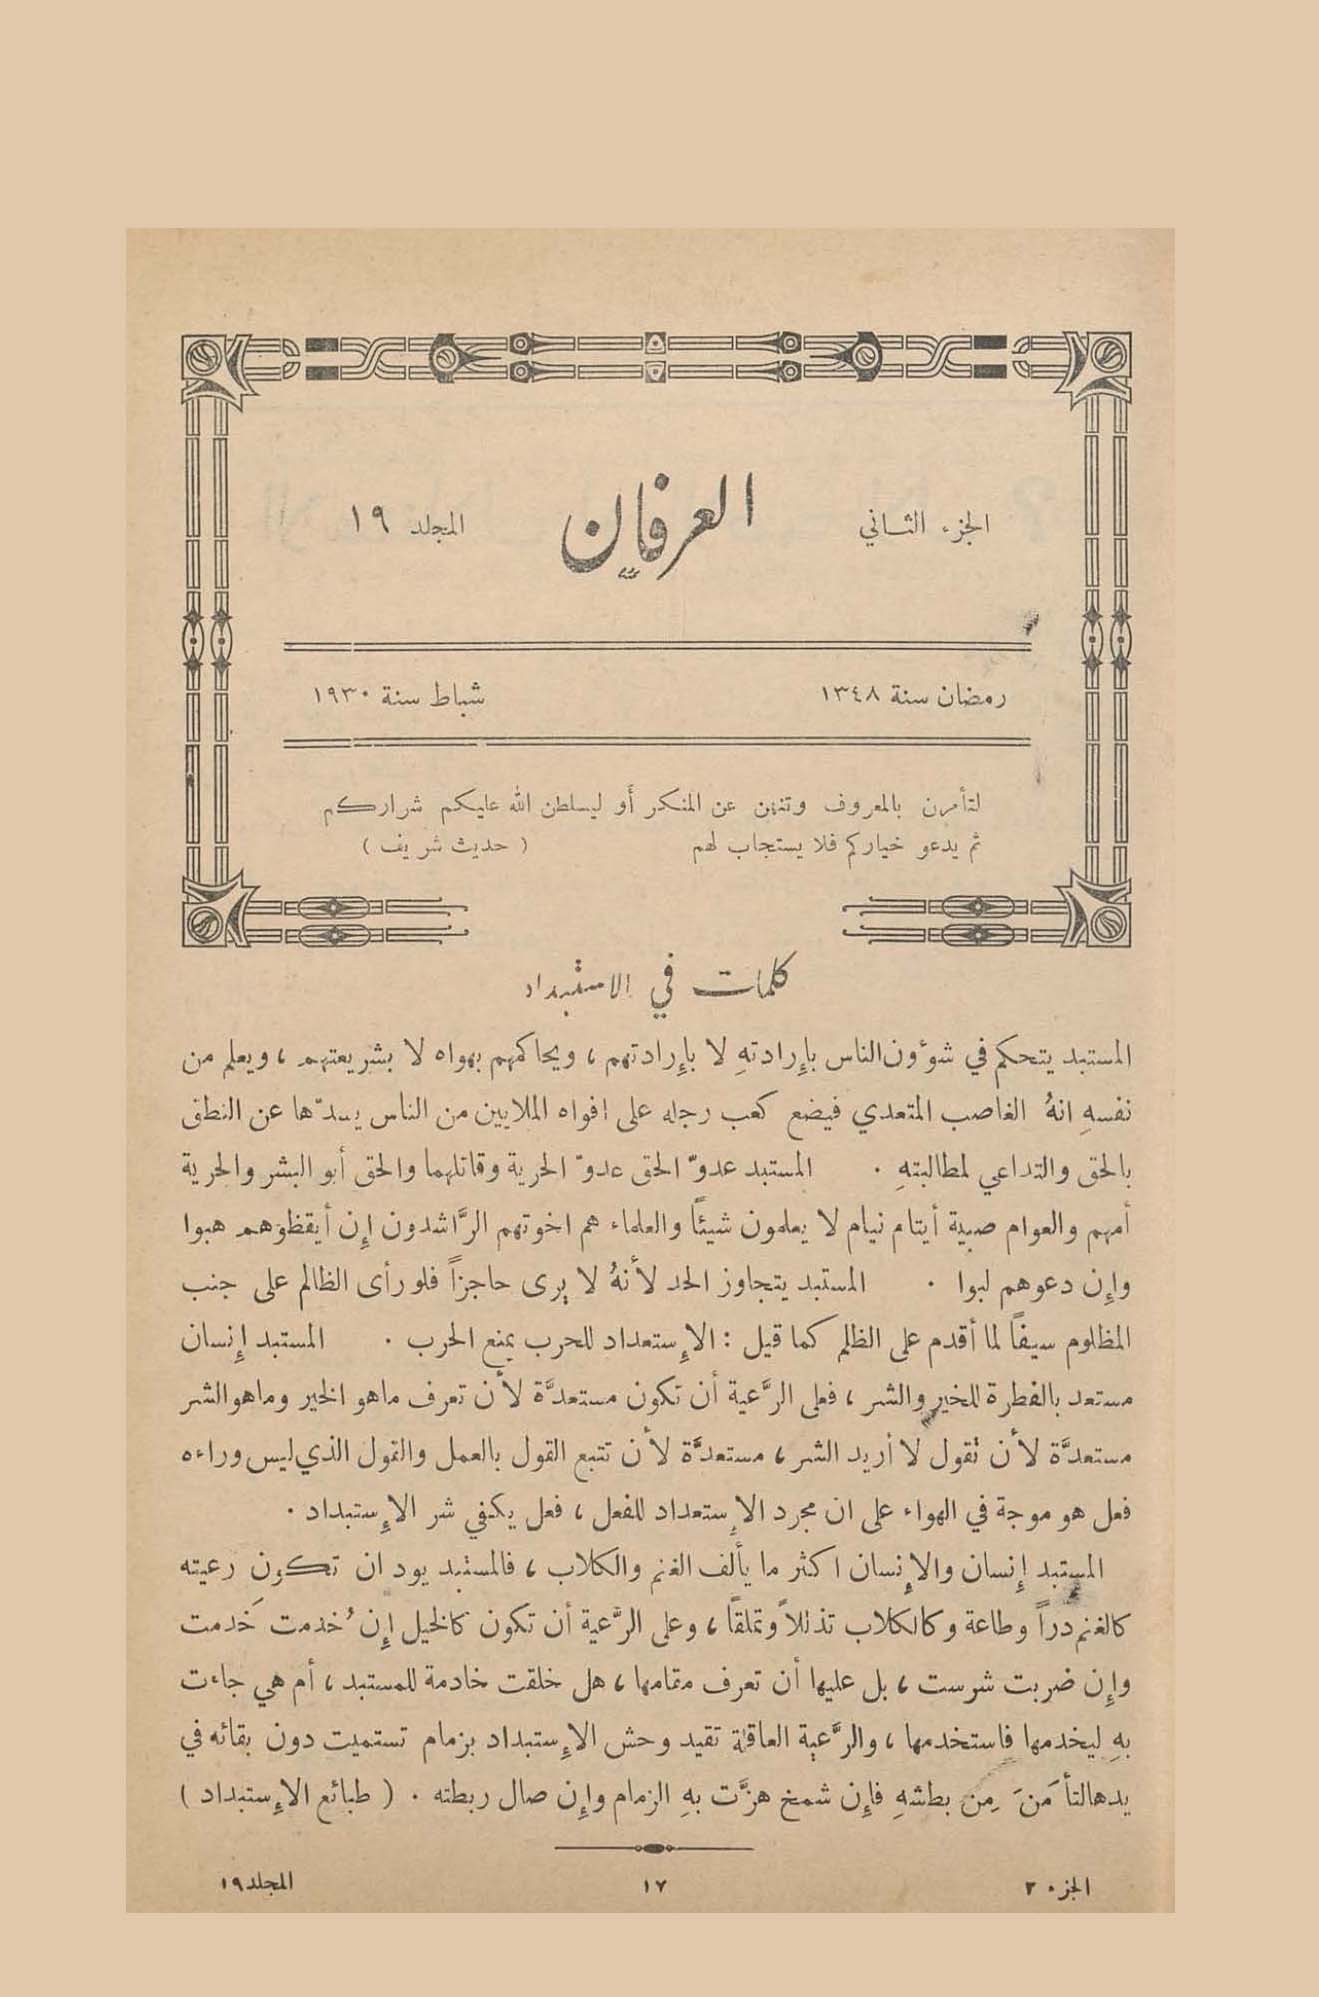 الجزء الثاني
العرفان
المجلد ١٩
رمضان سنة ١٣٤٨
شباط سنة ١٩٣٠
لتأمرن بالمعروف وتنهن عن المنكر أو ليسلطن الله عليكم شراركم
ثم يدعو خياركم فلا يستجاب لهم ( حديث شريف )
كلمات في الاستبداد
المستبد يتحكم في شوٴون الناس بإرادتهِ لا بإرادتهم ، ويحاكمهم بهواه لا بشريعتهم ، ويعلم من
نفسهِ انهُ الغاصب المتعدي فيضع كعب رجله على افواه الملايين من الناس يسدّها عن النطق
بالحق والتداعي لمطالبتهِ . المستبد عدوّ الحق عدوّ الحرية وقاتلهما والحق أبو البشر والحرية
أمهم والعوام صبية أيتام نيام لا يعلمون شيئاً والعلماء هم اخوتهم الرَّاشدون إن أيقظوهم هبوا
وإن دعوهم لبوا . المستبد يتجاوز الحد لأنهُ لا يرى حاجزاً فلو رأى الظالم على جنب
المظلوم سيفاً لما أقدم على الظلم كما قيل : الإستعداد للحرب يمنع الحرب . المستبد إنسان
مستعد بالفطرة للخير والشر ، فعلى الرَّعية أن تكون مستعدَّة لأن تعرف ماهو الخير وماهو الشر
مستعدَّة لأن تقول لا أريد الشر ، مستعدَّة لأن تتبع القول بالعمل والقول الذي ليس وراءه
فعل هو موجة في الهواء على ان مجرد الإستعداد للفعل ، فعل يكفي شر الإستبداد .
المستبد إنسان والإنسان اكثر ما يألف الغنم والكلاب ، فالمستبد يود ان تكون رعيته
كالغنم دراً وطاعة وكالكلاب تذللاً وتملقاً ، وعلى الرَّعية أن تكون كالخيل إن خُدمت خَدمت
وإن ضربت شرست ، بل عليها أن تعرف مقامها ، هل خلقت خادمة للمستبد ، أم هي جاءت
بهِ ليخدمها فاستخدمها ، والرَّعية العاقلة تقيد وحش الإستبداد بزمام تستميت دون بقائه في
يدها لتأمَنَ مِن بطشهِ فإن شمخ هزَّت بهِ الزمام وإن صال ربطته . ( طبائع الإستبداد )
الجزء ٢
١٧
المجلد ١٩